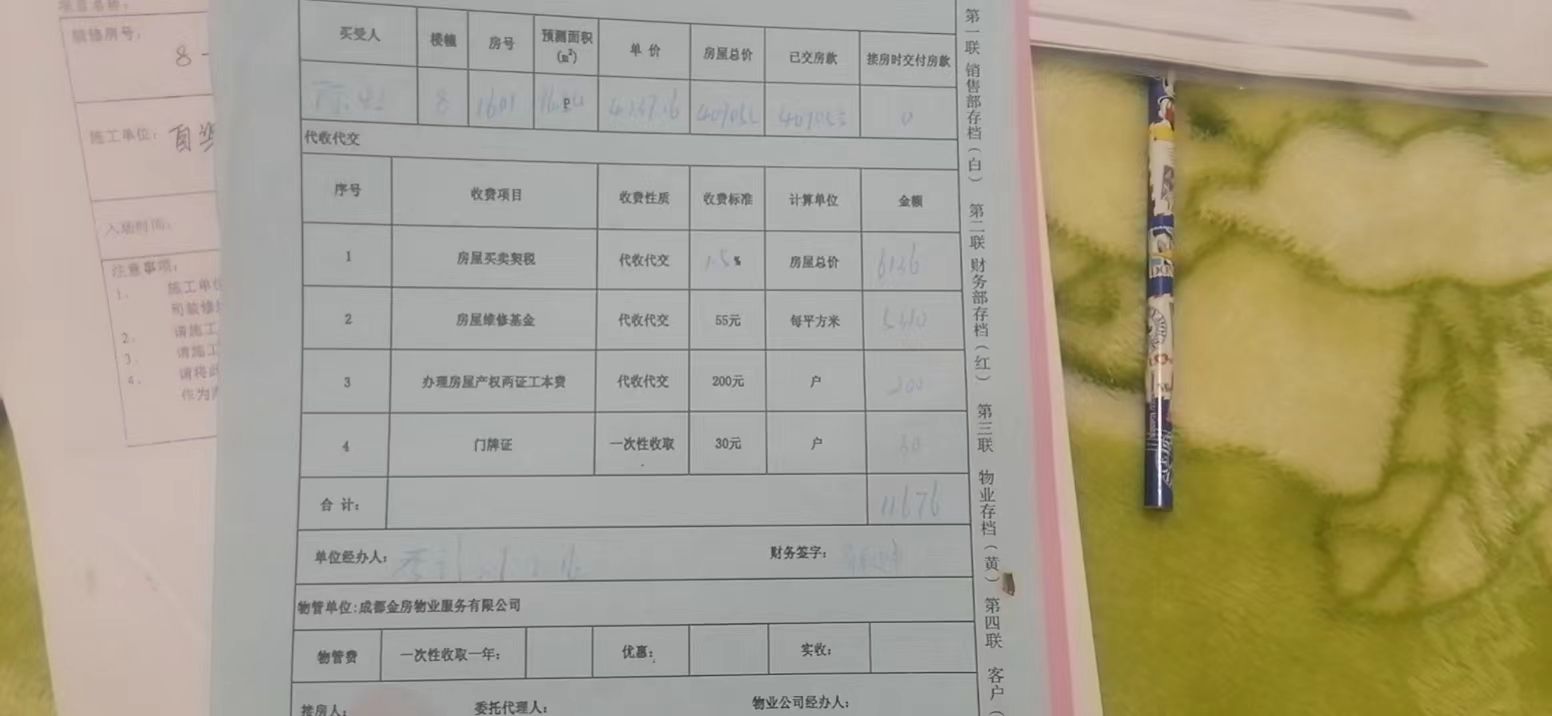 项目名称：
装修房号：
8-
施工单位：
自
入场时间：
注意事项：
1. 施工单位
司装修
2. 请施工
3. 请施工
4. 请将此
作为
买受人 楼幢 房号 预测面积(m²) 单价 房屋总价 已交房款 接房时交付房款
8 1601 0
代收代交
序号 收费项目 收费性质 收费标准 计算单位 金额
1 房屋买卖契税 代收代交 1.5% 房屋总价 6136
2 房屋维修基金 代收代交 55元 每平方米
3 办理房屋产权两证工本费 代收代交 200元 户 200
4 门牌证 一次性收取 30元 户 30
合计： 11676
单位经办人： 财务签字：
物管单位:成都金房物业服务有限公司
物管费 一次性收取一年： 优惠： 实收：
接房人： 委托代理人： 物业公司经办人：
第一联 销售部存档（白） 第二联 财务部存档（红） 第三联 物业存档（黄） 第四联 客户（